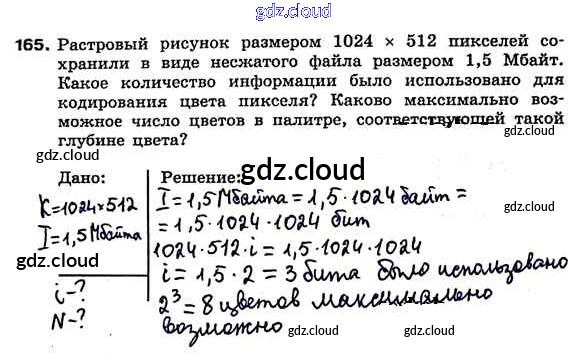 gdz.cloud
gdz.cloud
165. Растровый рисунок размером 1024 × 512 пикселей со-
хранили в виде несжатого файла размером 1,5 Мбайт.
Какое количество информации было использовано для
кодирования цвета пикселя? Каково максимально воз-
можное число цветов в палитре, соответствующей такой
глубине цвета?
gdz.cloud
gdz.cloud
gdz.cloud
Дано:
Решение:
K=1024×512
I=1,5 Мбайта
i-?
N-?
I=1,5 Мбайта = 1,5·1024 байт =
= 1,5·1024·1024 бит
1024·512·i = 1,5·1024·1024
i = 1,5·2 = 3 бита было использовано
2³ = 8 цветов максимально
возможно
gdz.cloud
gdz.cloud
gdz.cloud
gdz.cloud
gdz.cloud
gdz.cloud